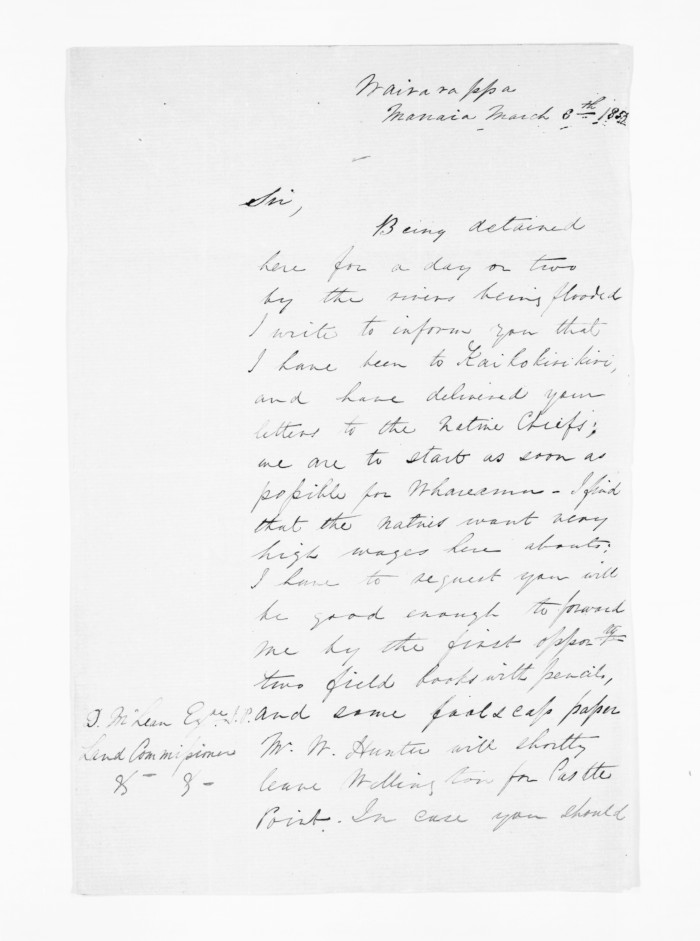 Wairarappa
Manaia March 8th 1853
Sir,
Being detained
here for a day or two
by the rivers being flooded
I write to inform you that
I have been to Kaihokirikiri,
and have delivered your
letters to the Native Chiefs;
we are to start as soon as
possible for Whareama - I find
that the natives want very
high wages here abouts;
I have to request you will
be good enough to forward
me by the first opporty
two field books with pencils,
and some foolscap paper
Mr. W. Hunter will shortly
leave Wellington for Castle
Point. In case you should
D. McLean Esqre J.P.
Land Commissioner
&c - &c -